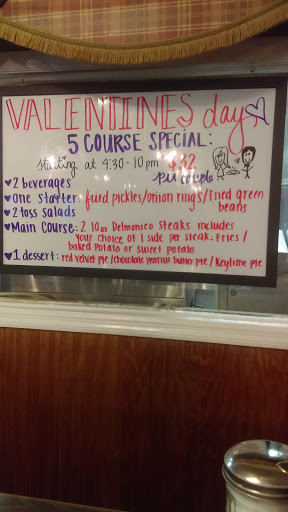 VALENTINES day
5 COURSE SPECIAL:
starting at 4:30-10pm $32
per couple
♥2 beverages
♥one starter: fried pickles/onion rings/fried green
beans
♥2 toss salads
♥Main Course: 2 10oz Delmonico Steaks includes
your choice of 1 side per steak. fries/
baked potato or sweet potato
♥1 dessert: red velvet pie/chocolate peanut butter pie/Keylime pie